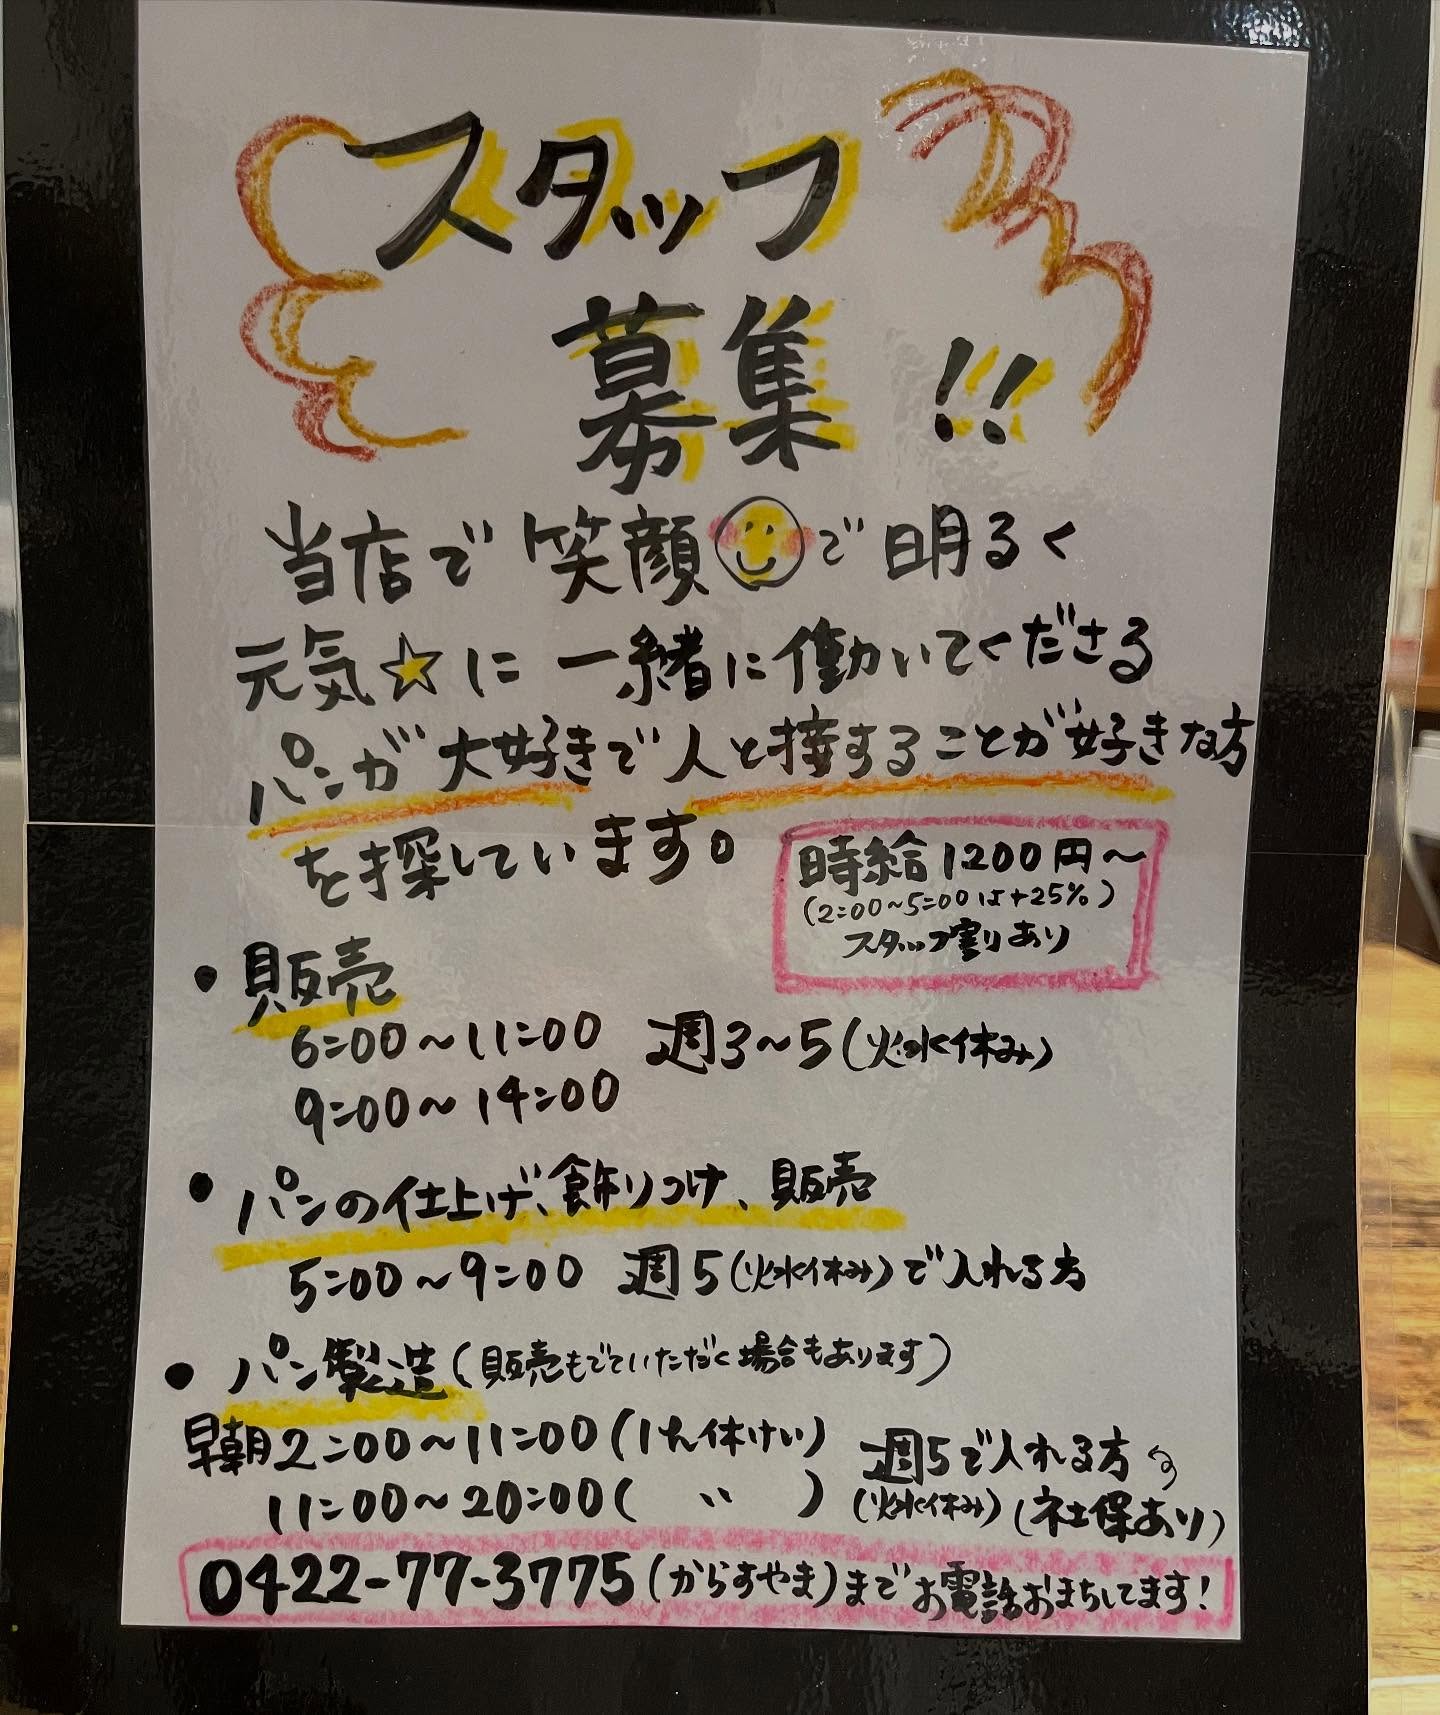 スタッフ
募集!!
当店で笑顔で明るく
元気☆に一緒に働いてくださる
パンが大好きで人と接することが好きな方
を探しています。
時給1200円～
(2:00～5:00は+25%)
スタッフ割りあり
・販売
6:00～11:00 週3～5(火水休み)
9:00～14:00
・パンの仕上げ、飾りつけ、販売
5:00～9:00 週5(火水休み)で入れる方
・パン製造(販売もでていただく場合もあります)
早朝2:00～11:00(1h休けい) 週5で入れる方
11:00～20:00( 〃 ) (火水休み)(社保あり)
0422-77-3775(からすやま)までお電話おまちしてます!